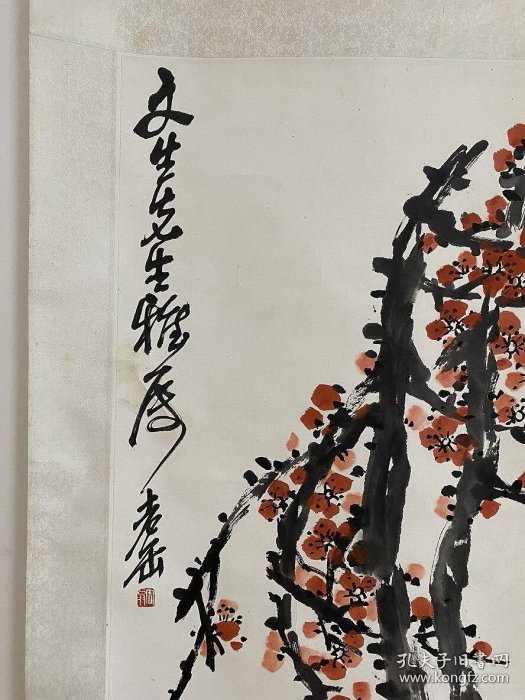 文生先生雅属
老缶
孔夫子旧书网
www.kongfz.com